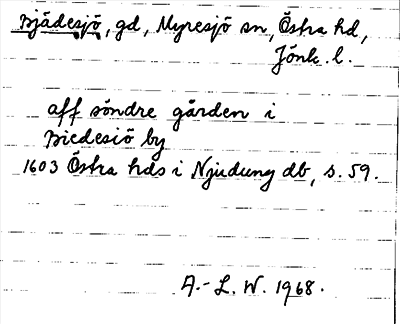 Bjädesjö, gd, Myresjö sn, Östra hd,
Jönk. l.
aff söndre gården i
Biedesiö by
1603 Östra hds i Njudung db, s. 59.
A.-L. W. 1968.